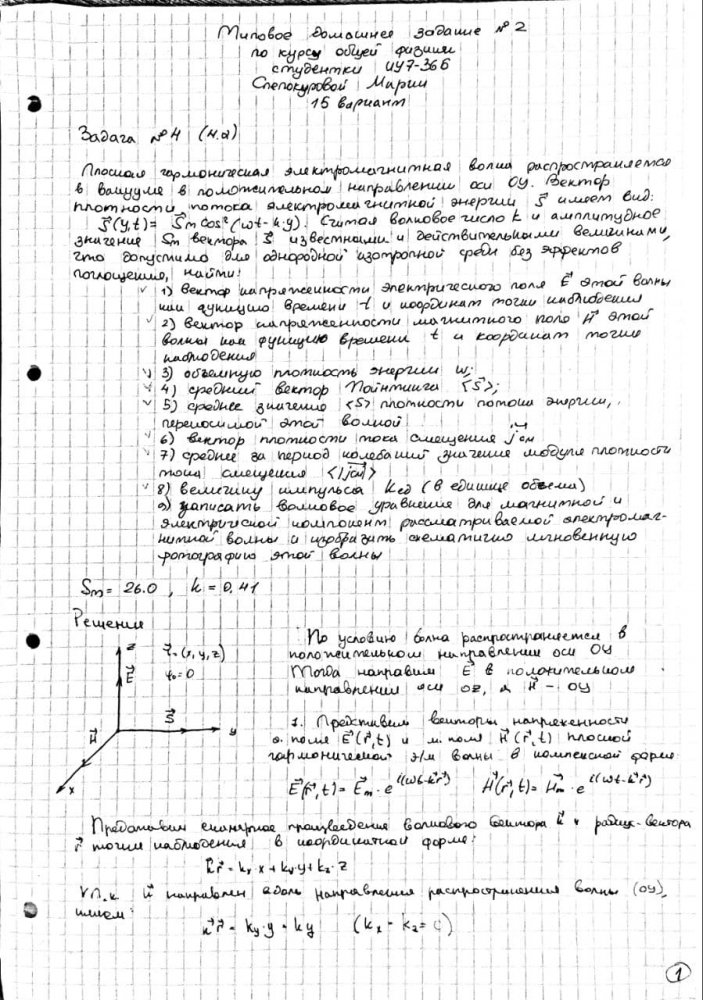 Типовое домашнее задание №2
по курсу общей физики
студентки ИУ7-36Б
Слепокуровой Марии
15 вариант
Задача №4 (4.2)
Плоская гармоническая электромагнитная волна распространяется
в вакууме в положительном направлении оси OY. Вектор
плотности потока электромагнитной энергии S⃗ имеет вид:
S⃗(y,t) = S⃗m cos²(ωt-k·y). Считая волновое число k и амплитудное
значение Sm вектора S⃗ известными и действительными величинами,
что допустимо для однородной изотропной среды без эффектов
поглощения, найти:
✓ 1) вектор напряженности электрического поля E⃗ этой волны
как функцию времени t и координат точки наблюдения
✓ 2) вектор напряженности магнитного поля H⃗ этой
волны как функцию времени t и координат точки
наблюдения
✓ 3) объемную плотность энергии w;
✓ 4) средний вектор Пойнтинга <S⃗>;
✓ 5) среднее значение <S> плотности потока энергии,
переносимой этой волной
✓ 6) вектор плотности тока смещения j⃗см
✓ 7) среднее за период колебаний значение модуля плотности
тока смещения <|j⃗см|>
✓ 8) величину импульса Kед (в единице объема)
9) записать волновое уравнение для магнитной и
электрической компонент рассматриваемой электромаг-
нитной волны и изобразить схематично мгновенную
фотографию этой волны
Sm = 26.0, k = 0.41
Решение
z
r⃗ = (x, y, z)
E⃗
φ₀=0
S⃗
H⃗
y
x
По условию волна распространяется в
положительном направлении оси OY
Тогда направим E⃗ в положительном
направлении оси OZ, а H⃗ - OY
1. Представим векторы напряженности
э. поля E⃗(r⃗,t) и м. поля H⃗(r⃗,t) плоской
гармонической э/м волны в комплексной форме
E⃗(r⃗,t) = E⃗m · e^i(ωt-k⃗r⃗) H⃗(r⃗,t) = H⃗m · e^i(ωt-k⃗r⃗)
Представим скалярное произведение волнового вектора k⃗ и радиус-вектора
r⃗ точки наблюдения в координатной форме:
k⃗r⃗ = kx·x + ky·y + kz·z
Т.к k⃗ направлен вдоль направления распространения волны (OY),
имеем:
k⃗r⃗ = ky·y = ky (kx = kz = 0)
1